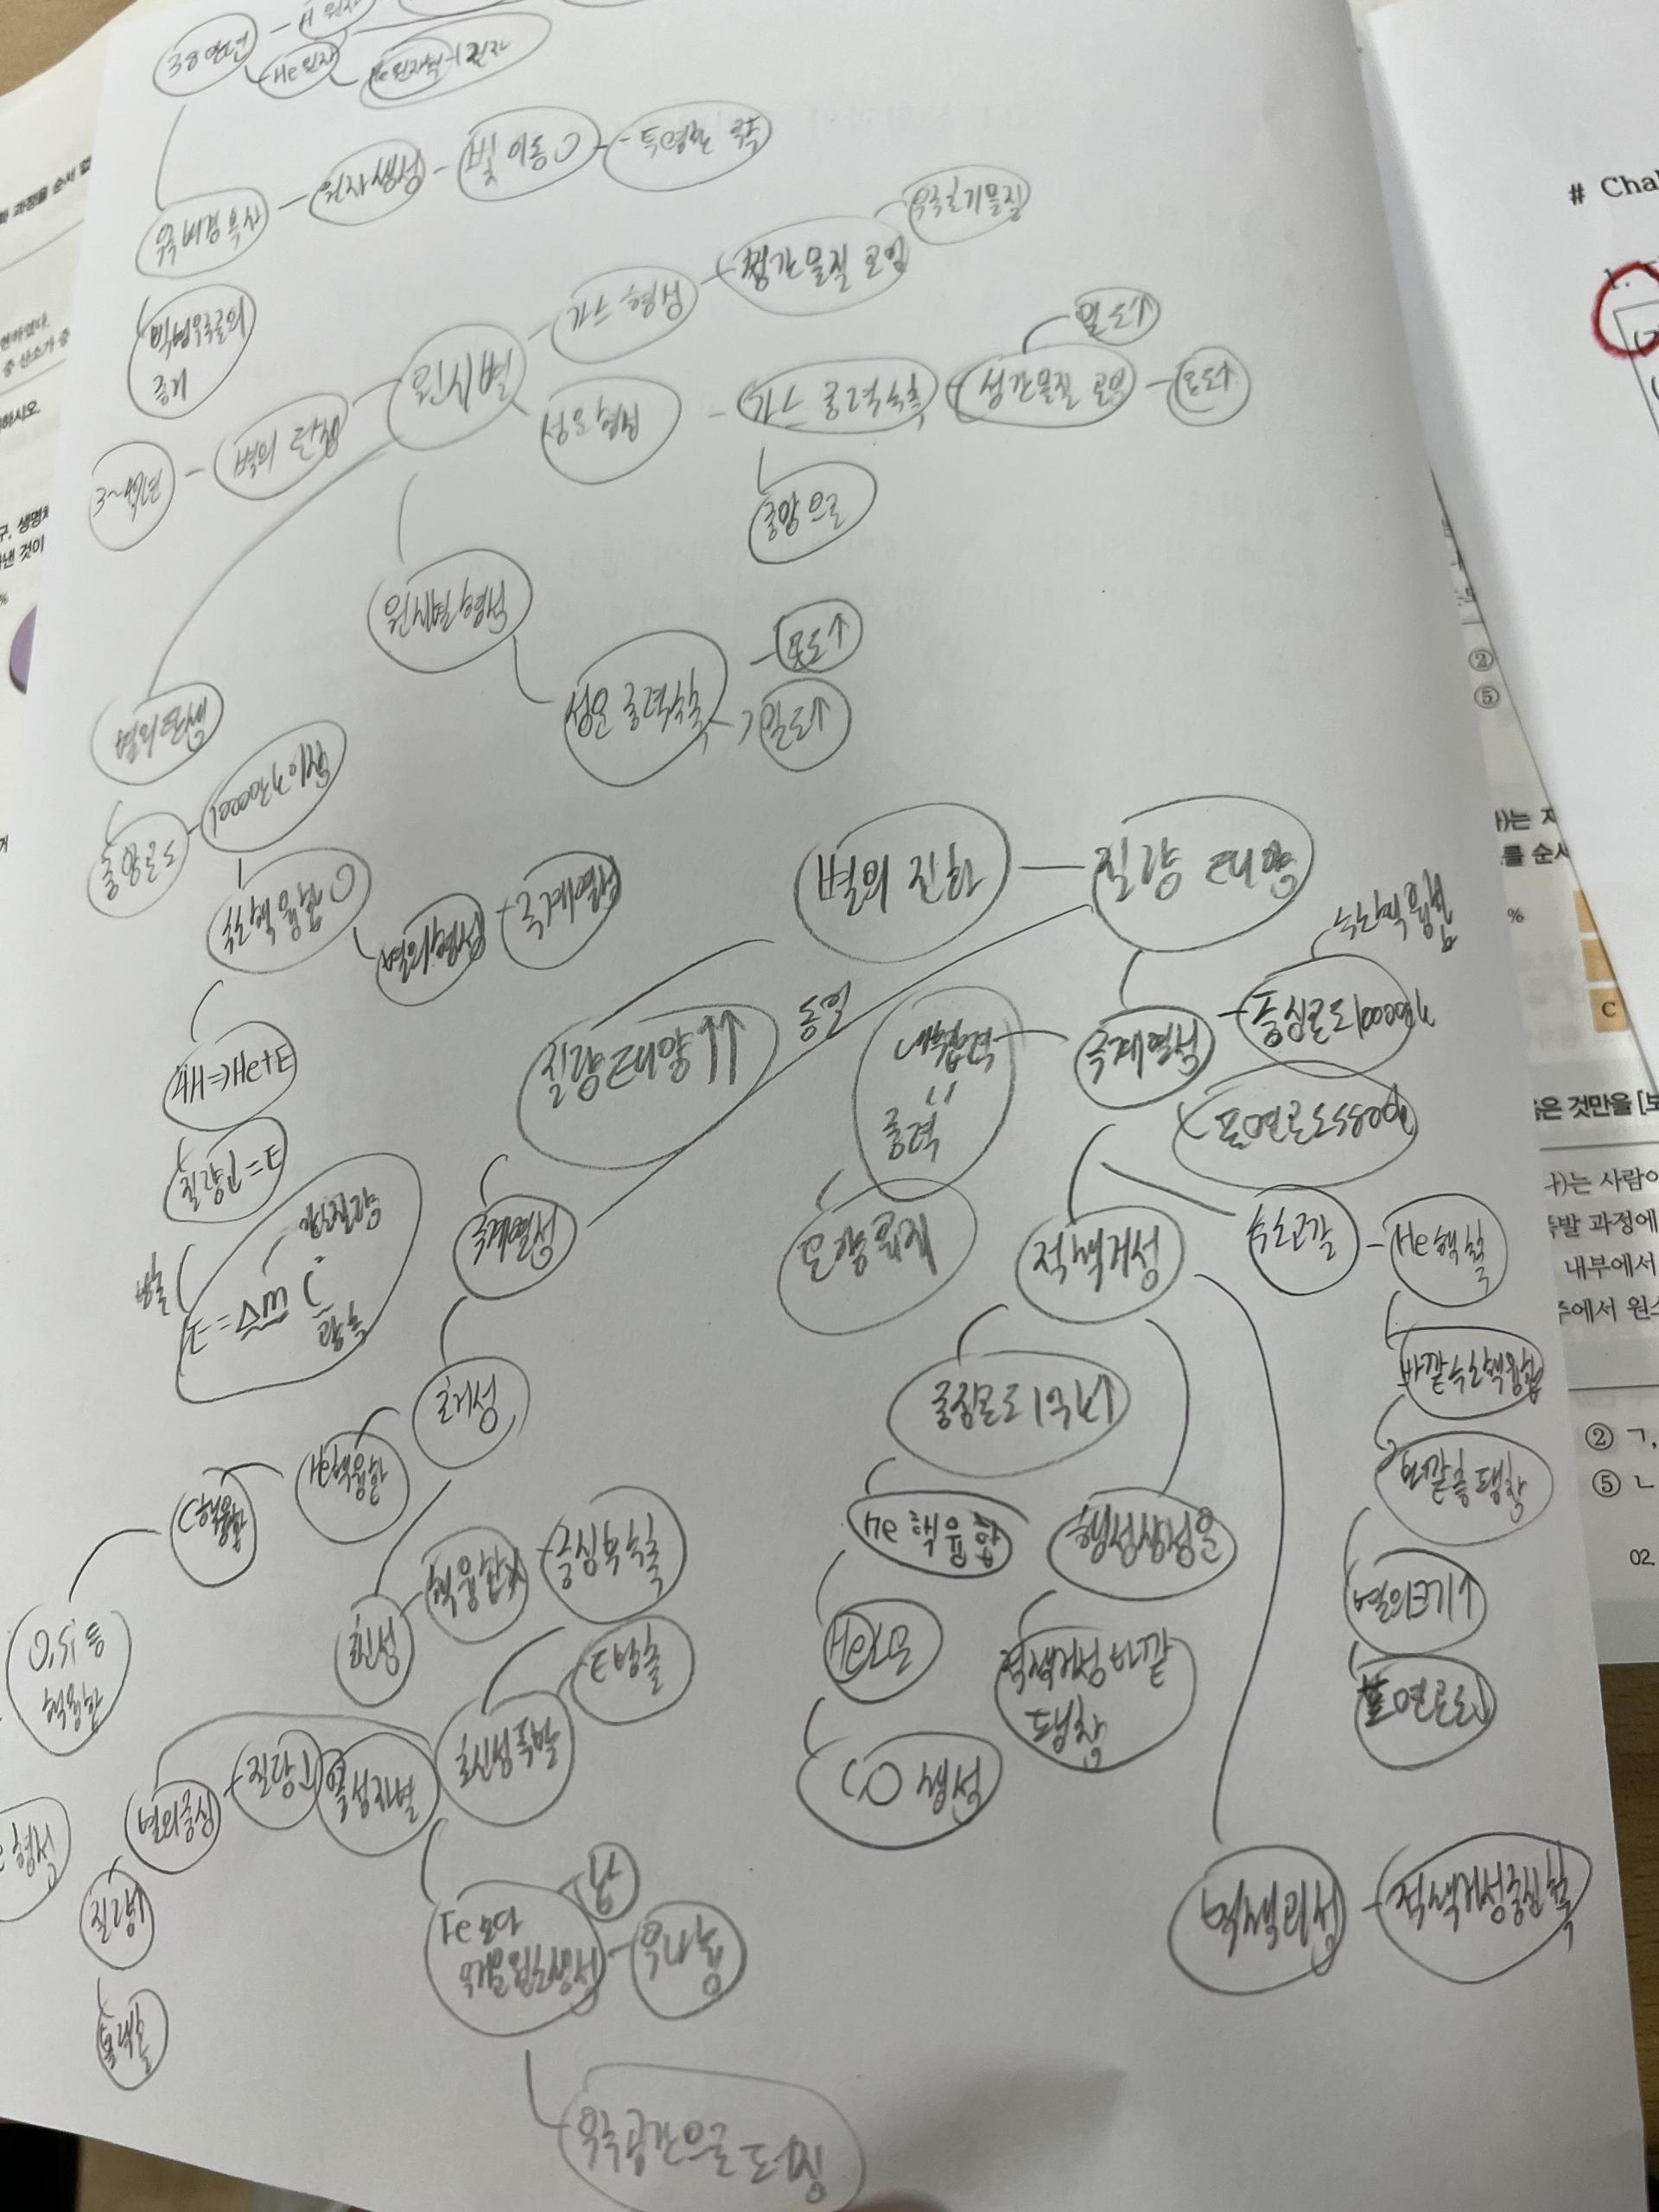 38만년
H 원자
He 원자
He 원자핵 + 전자
우주배경복사
원자생성
빛 이동 O
투명한 우주
빅뱅우주론의
증거
원시별
가스 형성
성간물질 모임
우주초기물질
성운형성
가스 중력수축
성간물질 모임
밀도↑
온도↑
중앙으로
별의 탄생
3~4억년
원시별 형성
성운 중력수축
온도↑
밀도↑
별의 탄생
중앙온도
1000만K이상
수소핵융합 O
별의 형성
주계열성
4H=>He+E
질량↓=E
방출
감소질량
E=Δm C²
광속
별의 진화
질량 태양
질량 태양↑↑
동일
내부압력
=
중력
모양유지
주계열성
중심온도 1000만K
수소핵융합
표면온도 5800K
적색거성
수소고갈
He핵 수축
바깥 수소핵융합
바깥층 팽창
별의크기↑
표면온도↓
중심온도 1억K↑
He 핵융합
He소모
C,O 생성
행성상성운
적색거성 바깥
팽창
백색왜성
적색거성중심 수축
주계열성
초거성
He핵융합
C핵융합
O, Si 등
핵융합
초신성
핵융합X
중심부 수축
초신성폭발
E방출
별의중심
질량↓
중성자별
질량↑
블랙홀
Fe보다
무거운 원소생성
금
우라늄
우주공간으로 퍼짐
# Cha
1.
② ㄱ,
⑤ ㄴ
02.
②
⑤
%
C
하)는 사람이
내부에서
주에서 원소
은 것만을 [보
구, 생명체
낸 것이
하시오.